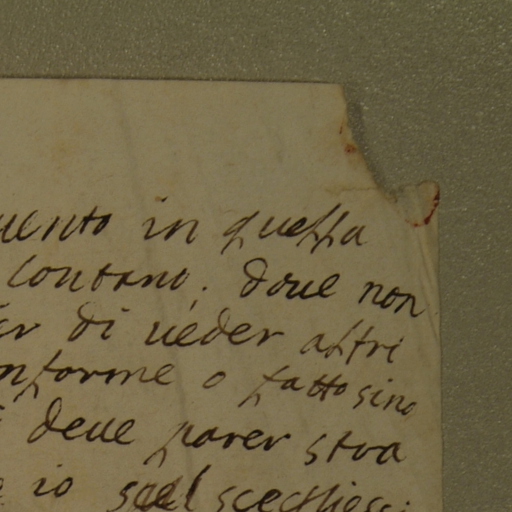 uento in questa
lontano. doue non
er di ueder altri
nforme o fatto sino
deue parer stra
io scegliessi